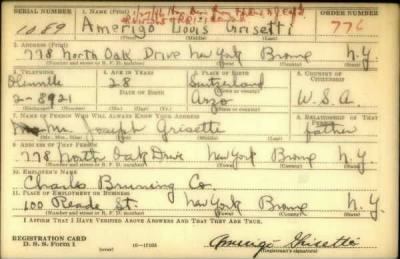 SERIAL NUMBER 1. NAME (Print) ORDER NUMBER
1089 Amerigo Louis Grisetti 776
(First) (Middle) (Last)
2. ADDRESS (Print)
778 North Oak Drive New York Bronx N.Y.
(Number and street or R. F. D. number) (Town) (County) (State)
3. TELEPHONE 4. AGE IN YEARS 5. PLACE OF BIRTH 6. COUNTRY OF CITIZENSHIP
Olinville 28 Switzerland
2-8921 DATE OF BIRTH Arzo U.S.A.
(Exchange) (Number) (Mo.) (Day) (Yr.) (Town or county) (State or country)
7. NAME OF PERSON WHO WILL ALWAYS KNOW YOUR ADDRESS 8. RELATIONSHIP OF THAT PERSON
Mr. Joseph Grisetti father
(Mr., Mrs., Miss) (First) (Middle) (Last)
9. ADDRESS OF THAT PERSON
778 North Oak Drive New York Bronx N.Y.
(Number and street or R. F. D. number) (Town) (County) (State)
10. EMPLOYER'S NAME
Charles Bruning Co.
11. PLACE OF EMPLOYMENT OR BUSINESS
100 Reade St. New York Bronx N.Y.
(Number and street or R. F. D. number) (Town) (County) (State)
I AFFIRM THAT I HAVE VERIFIED ABOVE ANSWERS AND THAT THEY ARE TRUE.
REGISTRATION CARD
D. S. S. Form 1 16-17105 Amerigo Grisetti
(Registrant's signature)